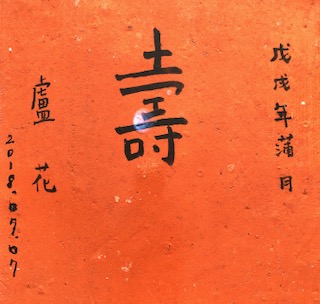 戊戌年蒲月
壽
盧花
2018.07.07